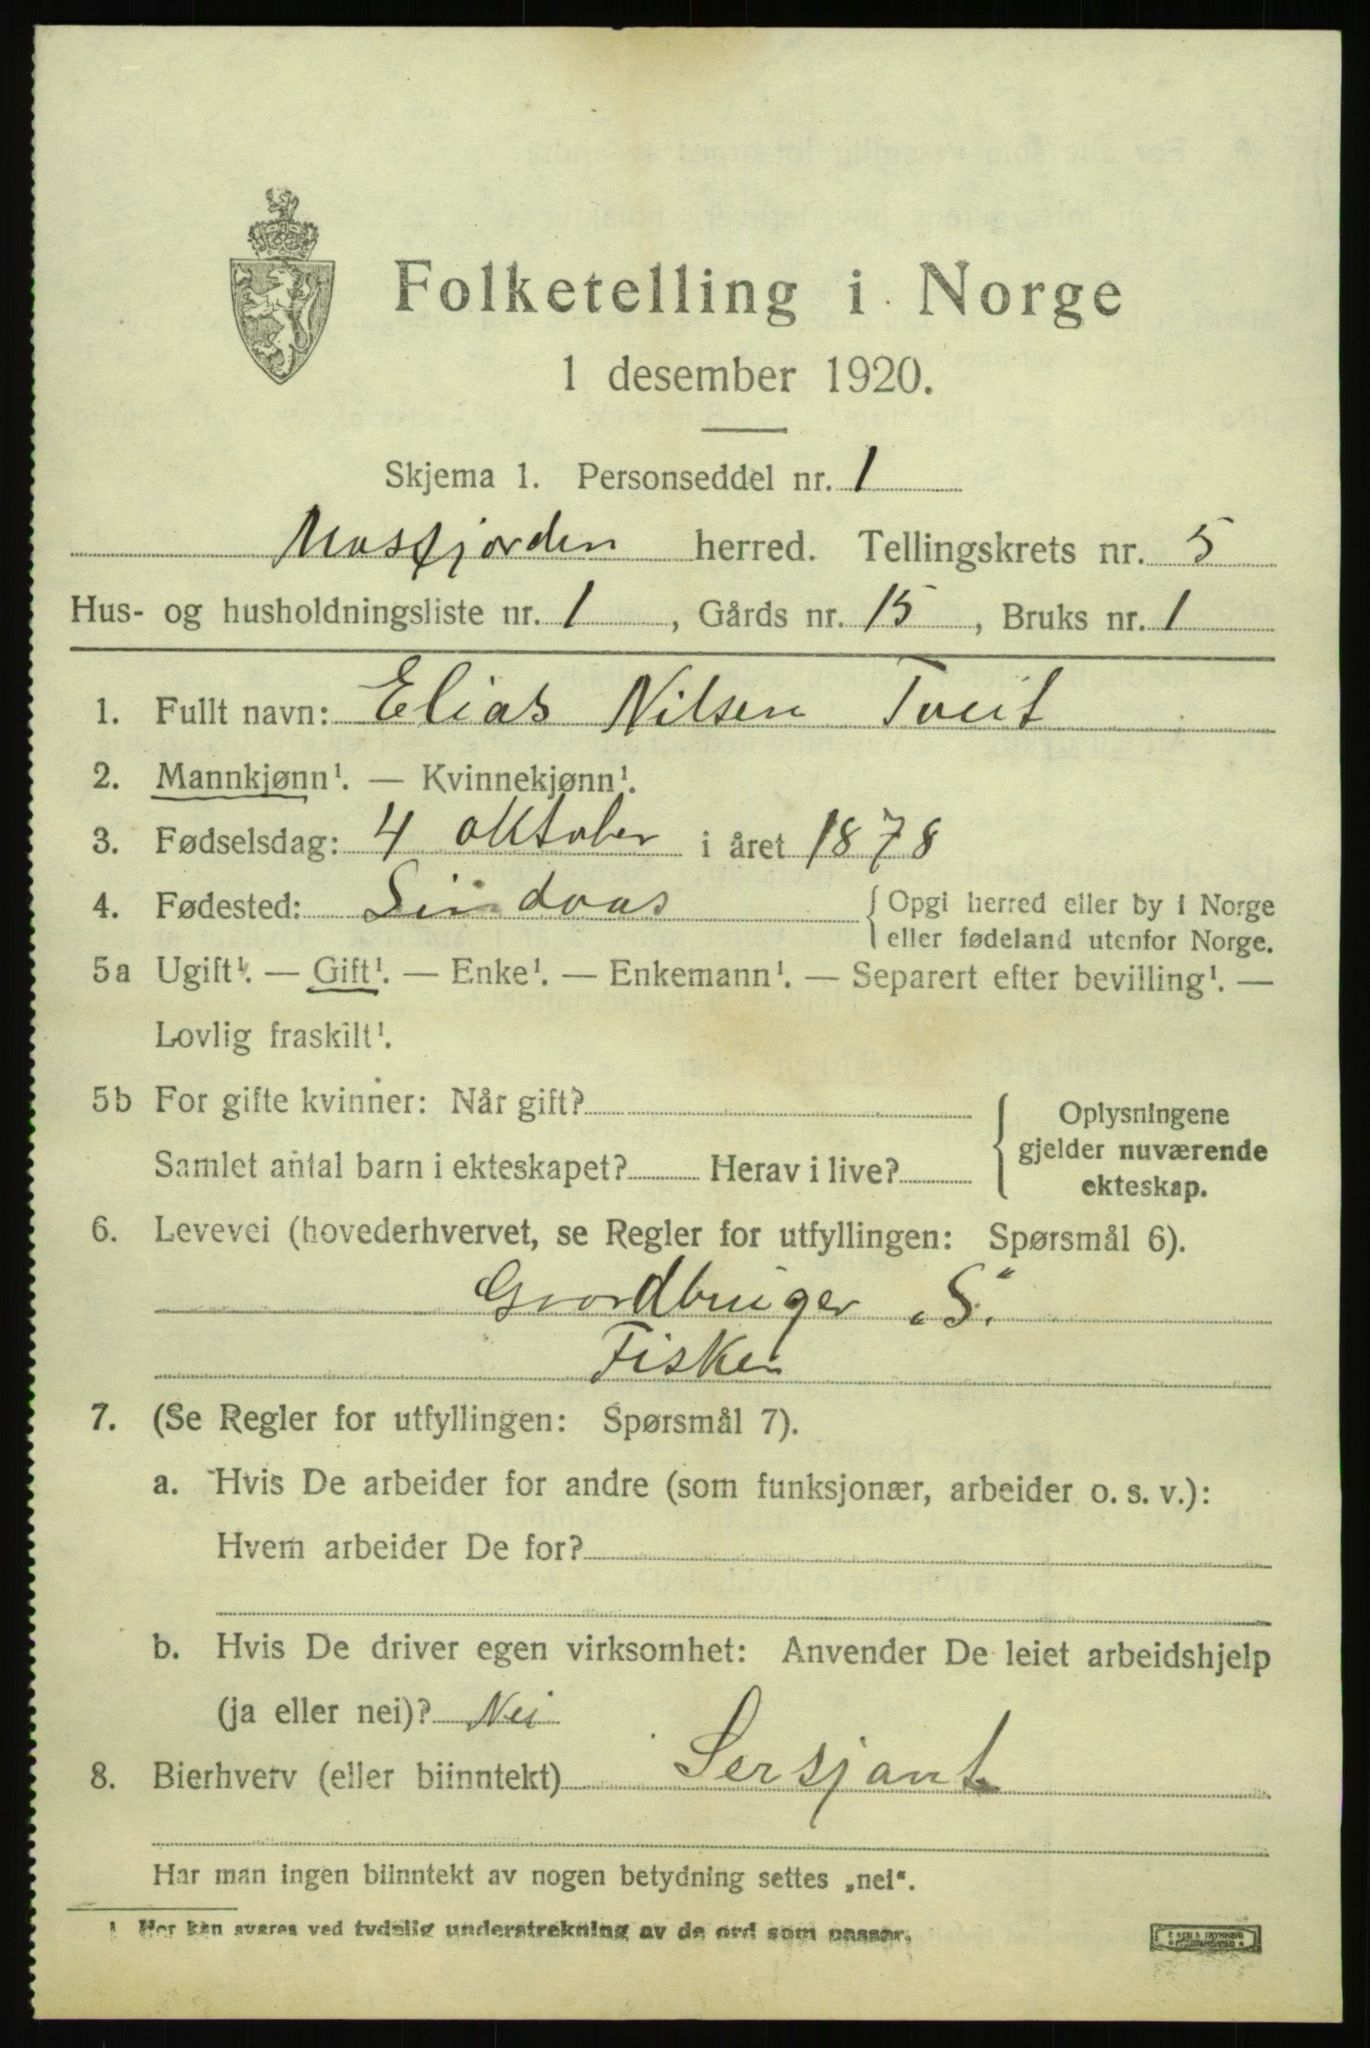 Folketelling i Norge
1 desember 1920.
Skjema 1. Personseddel nr. 1
Masfjorden herred. Tellingskrets nr. 5
Hus- og husholdningsliste nr. 1, Gårds nr. 15, Bruks nr. 1
1. Fullt navn: Elias Nilsen Tveit
2. Mannkjønn¹. — Kvinnekjønn¹.
3. Fødselsdag: 4 oktober i året 1878
4. Fødested: Lindaas { Opgi herred eller by i Norge
eller fødeland utenfor Norge.
5a Ugift¹. — Gift¹. — Enke¹. — Enkemann¹. — Separert efter bevilling¹. —
Lovlig fraskilt¹.
5b For gifte kvinner: Når gift?
Samlet antal barn i ekteskapet? Herav i live?
{ Oplysningene
gjelder nuværende
ekteskap.
6. Levevei (hovederhvervet, se Regler for utfyllingen: Spørsmål 6).
Gaardbruger „S.“
Fisker
7. (Se Regler for utfyllingen: Spørsmål 7).
a. Hvis De arbeider for andre (som funksjonær, arbeider o. s. v.):
Hvem arbeider De for?
b. Hvis De driver egen virksomhet: Anvender De leiet arbeidshjelp
(ja eller nei)? Nei
8. Bierhverv (eller biinntekt) Sersjant
Har man ingen biinntekt av nogen betydning settes „nei“.
1 Her kan svares ved tydelig understrekning av de ord som passer.